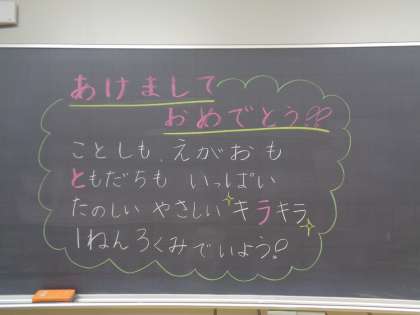 あけまして
おめでとう!!
ことしも、えがおも
ともだちも いっぱい
たのしい やさしい キラキラ
1ねんろくみでいよう!